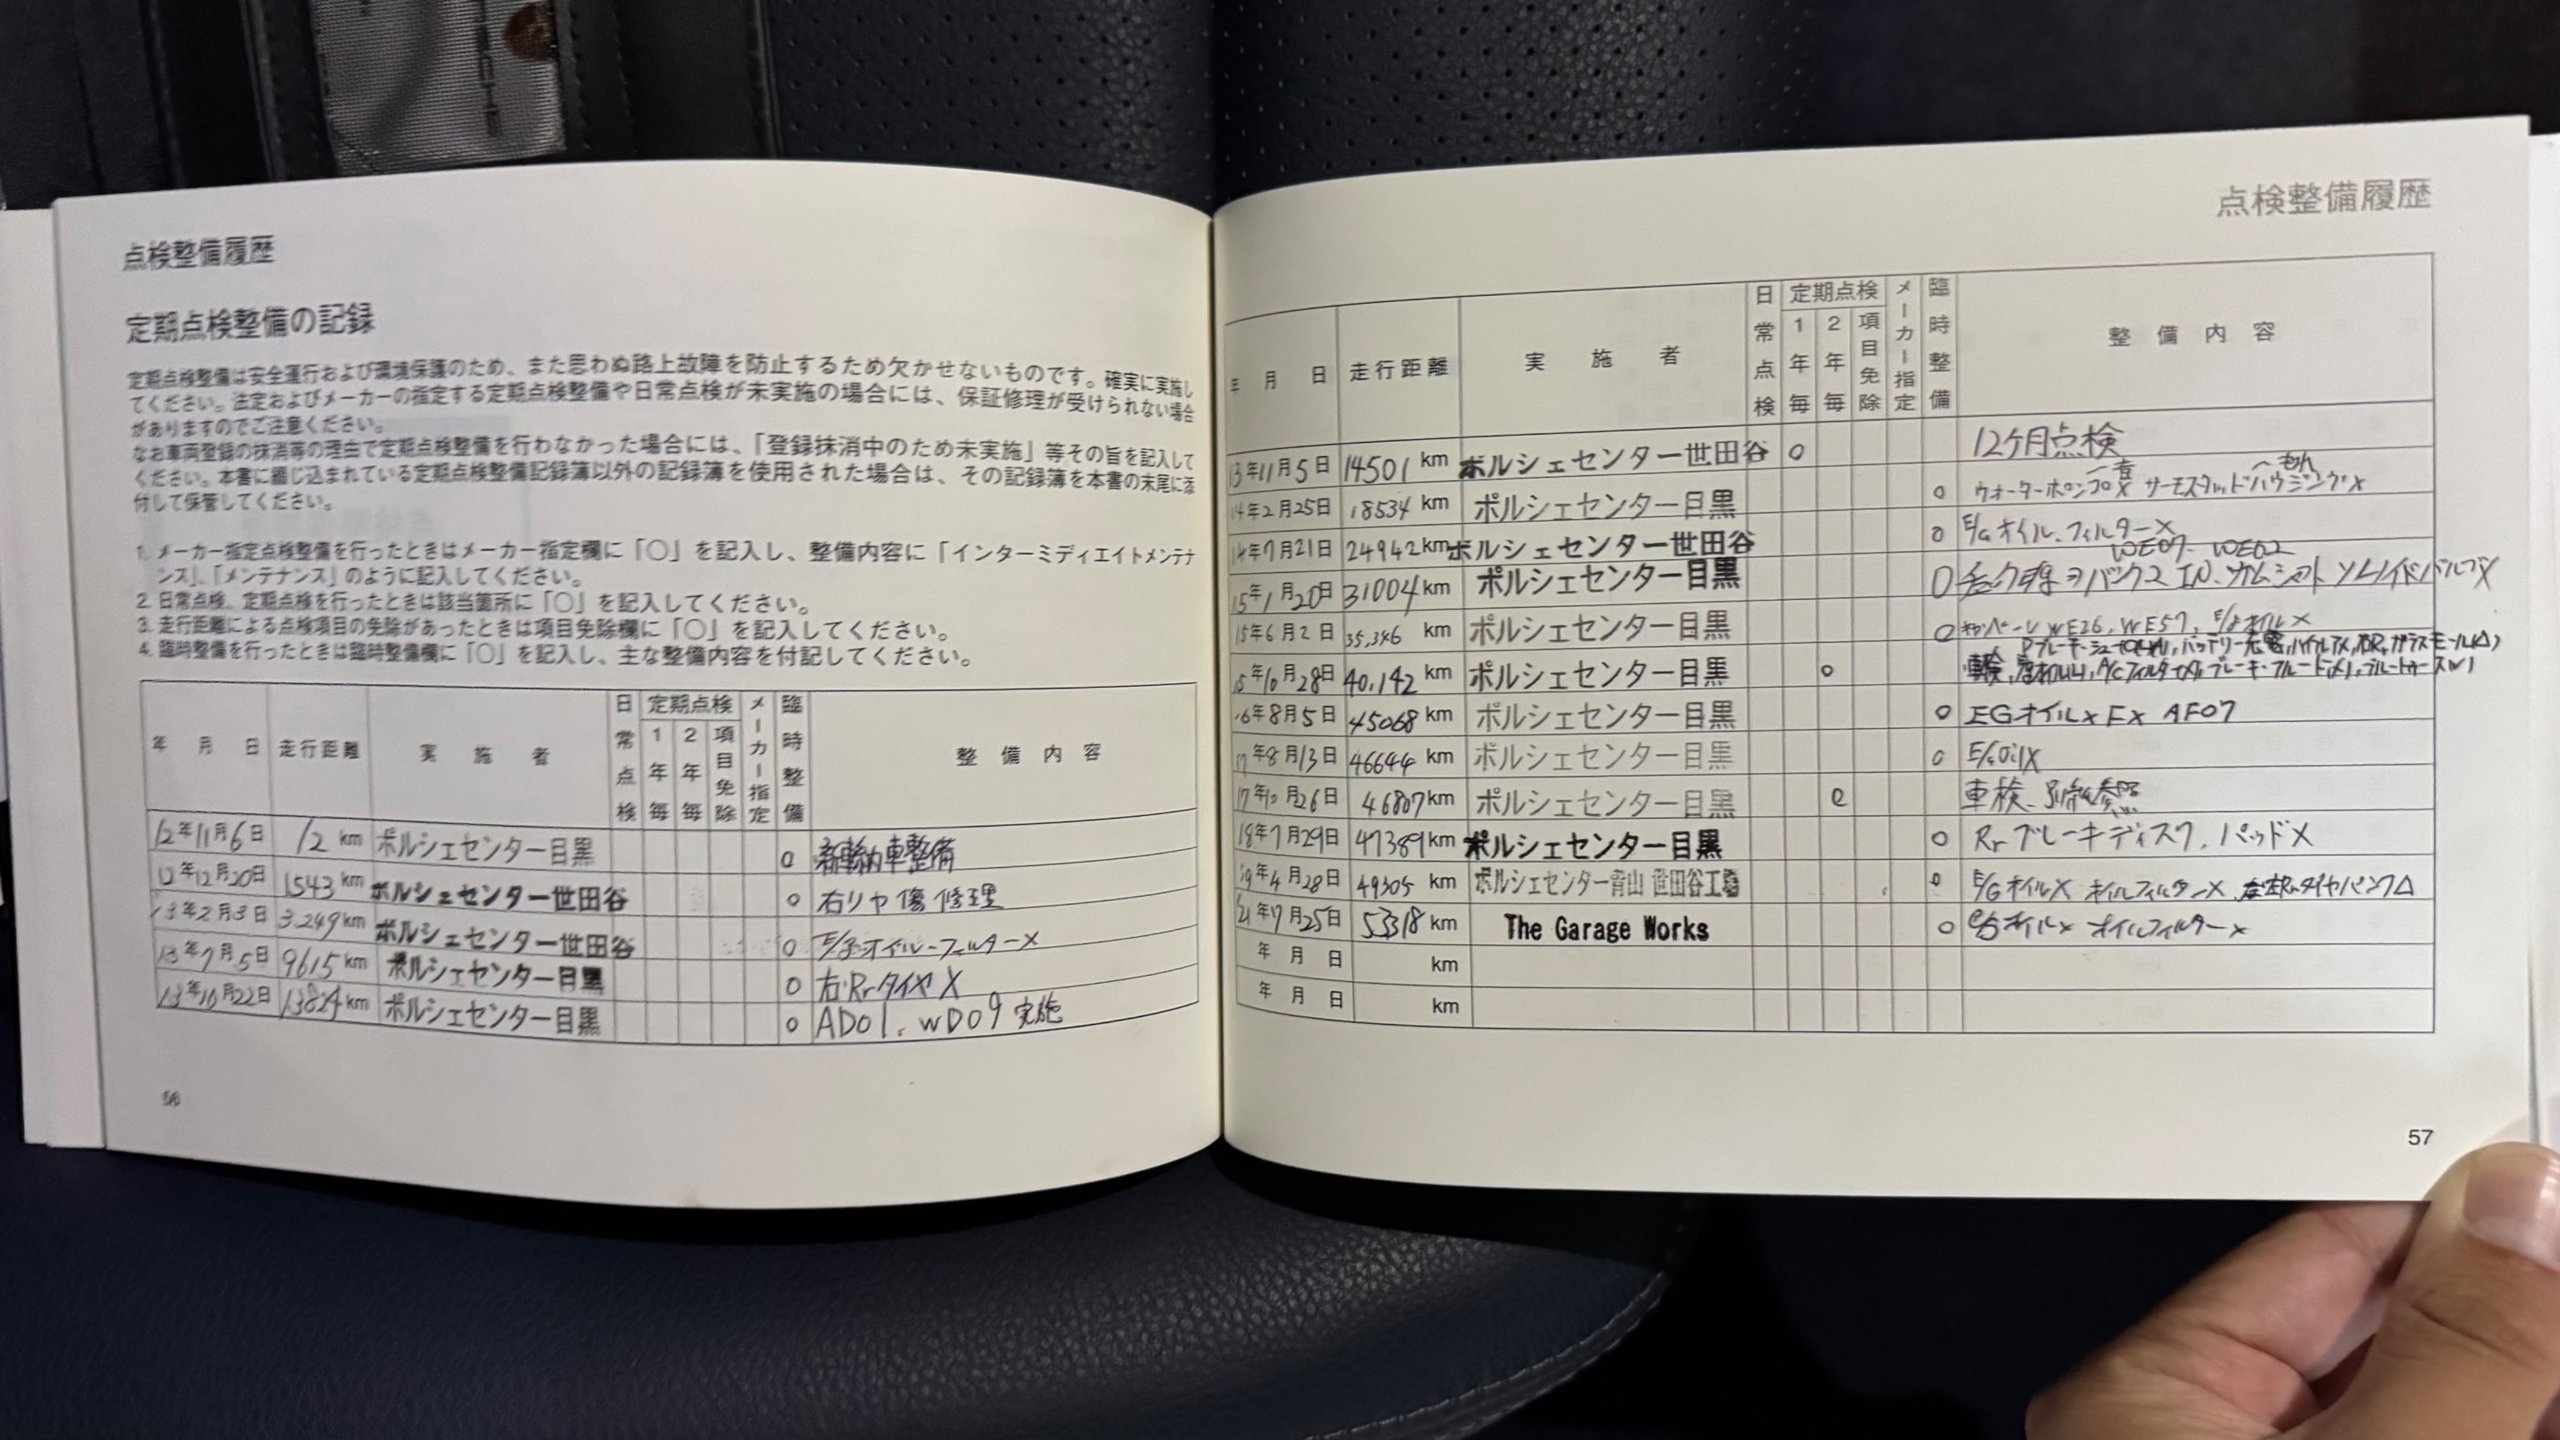 点検整備履歴
定期点検整備の記録
定期点検整備は安全運行および環境保護のため、また思わぬ路上故障を防止するため欠かせないものです。確実に実施し
てください。法定およびメーカーの指定する定期点検整備や日常点検が未実施の場合には、保証修理が受けられない場合
がありますのでご注意ください。
なお車両登録の抹消等の理由で定期点検整備を行わなかった場合には、「登録抹消中のため未実施」等その旨を記入して
ください。本書に綴じ込まれている定期点検整備記録簿以外の記録簿を使用された場合は、その記録簿を本書の末尾に添
付して保管してください。
1. メーカー指定点検整備を行ったときはメーカー指定欄に「〇」を記入し、整備内容に「インターミディエイトメンテナ
ンス」、「メンテナンス」のように記入してください。
2. 日常点検、定期点検を行ったときは該当箇所に「〇」を記入してください。
3. 走行距離による点検項目の免除があったときは項目免除欄に「〇」を記入してください。
4. 臨時整備を行ったときは臨時整備欄に「〇」を記入し、主な整備内容を付記してください。
年 月 日 走行距離 実施者 日常点検 定期点検 1年毎 2年毎 項目免除 メーカー指定 臨時整備 整備内容
12年11月6日 12 km ポルシェセンター目黒 〇 新車納車整備
12年12月20日 1543 km ポルシェセンター世田谷 〇 右リヤ傷修理
13年2月3日 3,249 km ポルシェセンター世田谷 〇 E/gオイル-フィルター×
13年7月5日 9615 km ポルシェセンター目黒 〇 右Rrタイヤ×
13年10月22日 13824 km ポルシェセンター目黒 〇 AD01. WD09 実施
56
点検整備履歴
年 月 日 走行距離 実施者 日常点検 定期点検 1年毎 2年毎 項目免除 メーカー指定 臨時整備 整備内容
13年11月5日 14501 km ポルシェセンター世田谷 〇 12ケ月点検
14年2月25日 18534 km ポルシェセンター目黒 〇 ウォーターポンプ× サーモスタッドハウジング×
14年7月21日 24942 km ポルシェセンター世田谷 〇 E/Gオイル.フィルター×
WE07. WE02
15年1月20日 31004 km ポルシェセンター目黒 〇 バンク2 IN.カムシャフト ソレノイドバルブ×
15年6月2日 35,346 km ポルシェセンター目黒 〇 キャンペーン WE26, WE57, E/gオイル×
15年10月28日 40,142 km ポルシェセンター目黒 〇 車検
16年8月5日 45068 km ポルシェセンター目黒 〇 EGオイル× E× AF07
17年8月13日 46644 km ポルシェセンター目黒 〇 E/Goil×
17年10月26日 46807 km ポルシェセンター目黒 〇 車検、別紙参照
18年7月29日 47389 km ポルシェセンター目黒 〇 Rrブレーキディスク.パッド×
19年4月28日 49305 km ポルシェセンター青山 世田谷工場 〇 E/Gオイル× オイルフィルター×
21年7月25日 53318 km The Garage Works 〇 オイル× オイルフィルター×
年 月 日 km
年 月 日 km
57